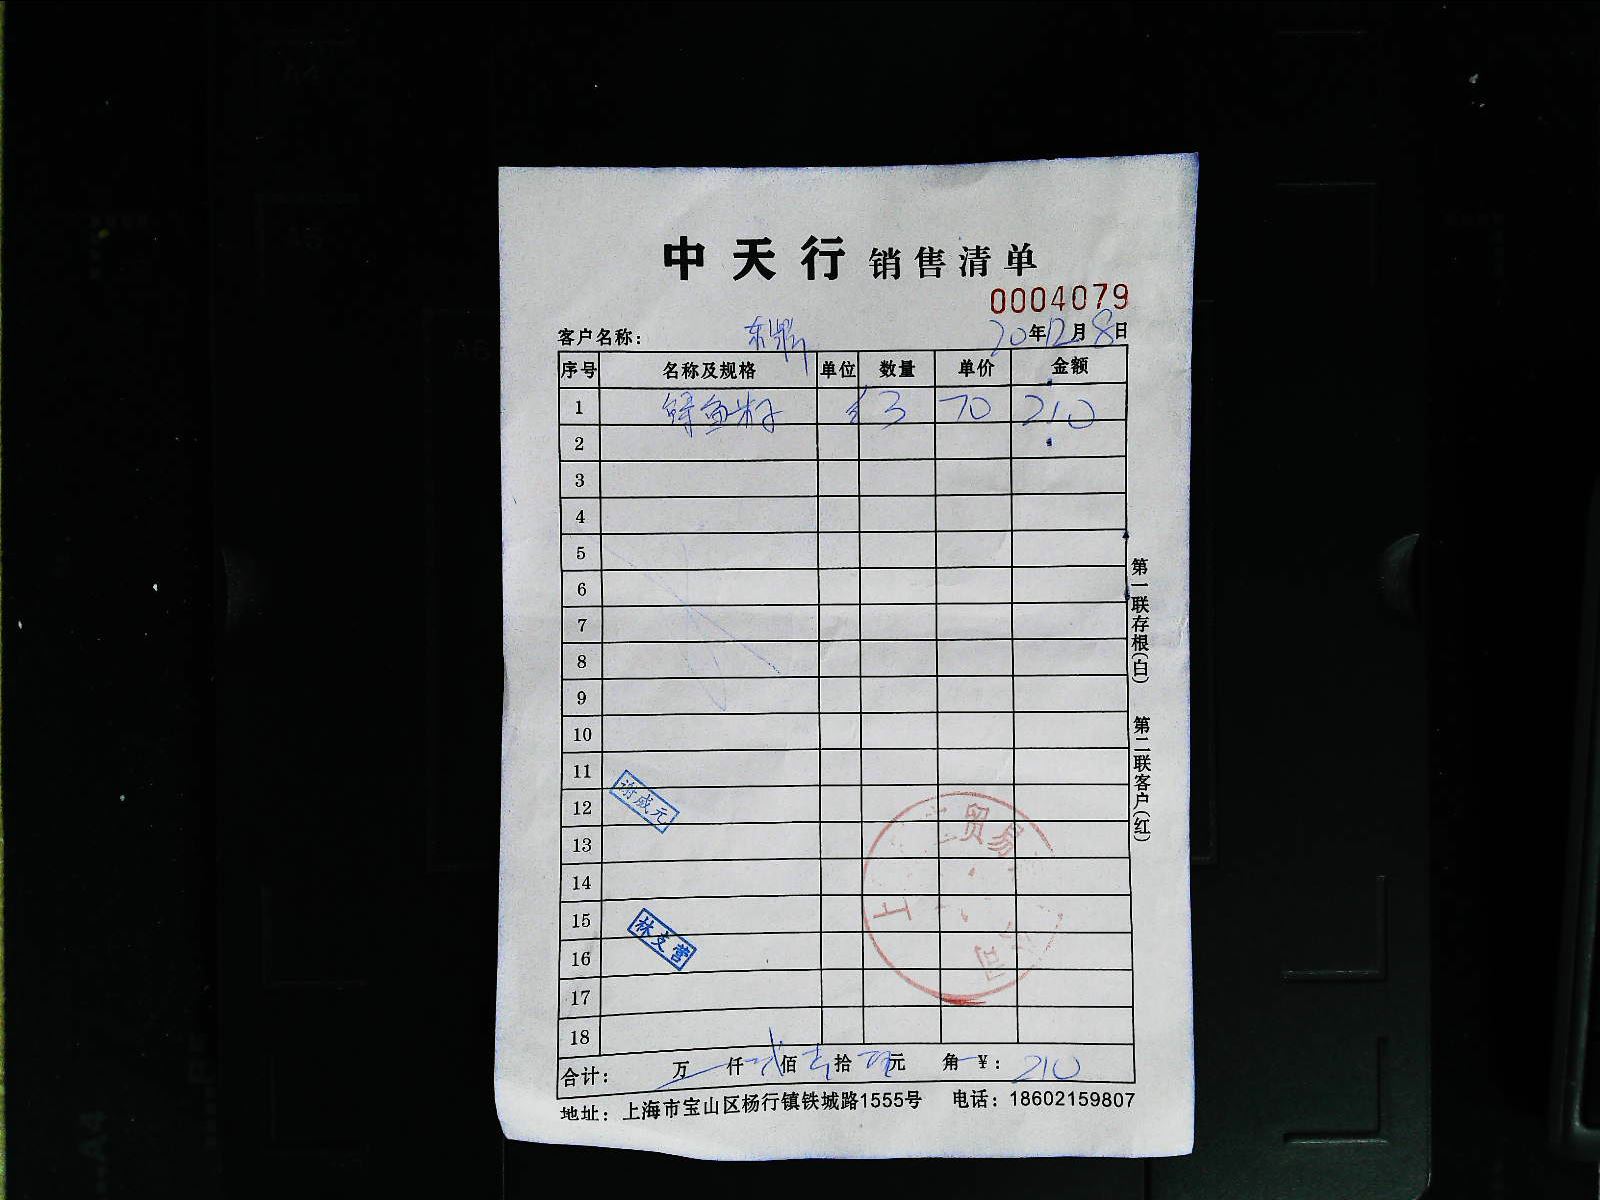 中天行 销售清单
0004079
客户名称： 东鼎 20年12月8日
序号 名称及规格 单位 数量 单价 金额
1 鲟鱼籽 3 70 210
2
3
4
5
6
7
8
9
10
11
12
13
14
15
16
17
18
谢咸元
林支营
贸易
上
司
合计： 万 仟 贰佰 壹拾 元 角 ¥：210
地址：上海市宝山区杨行镇铁城路1555号 电话：18602159807
第一联存根(白) 第二联客户(红)